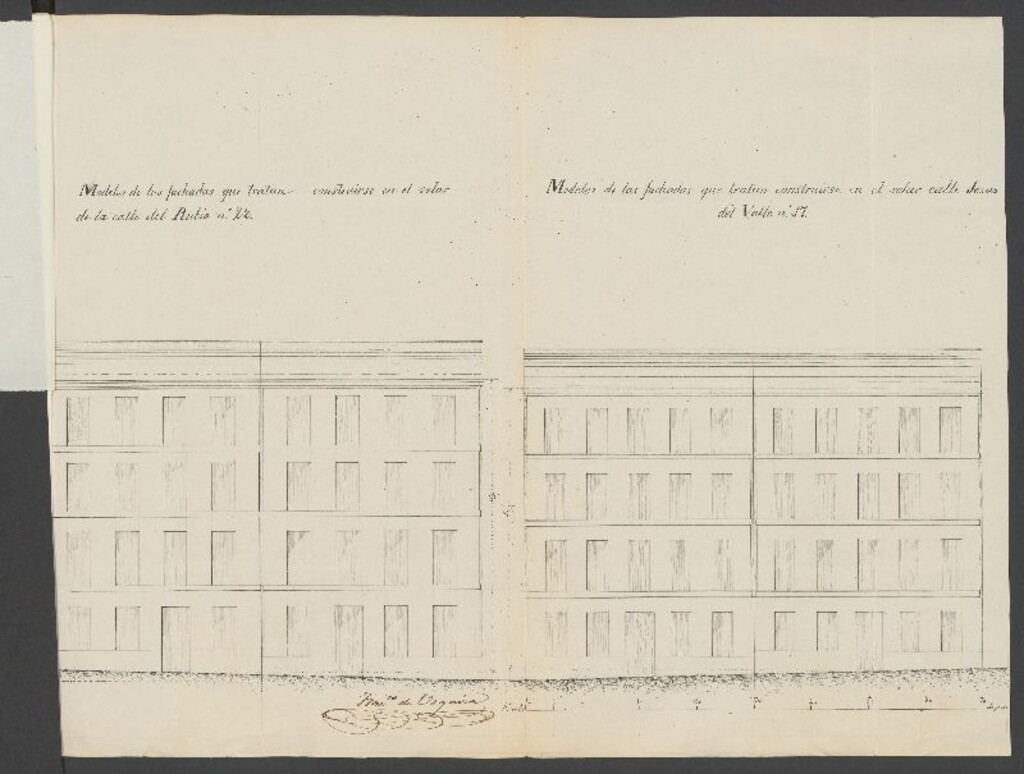 Modelos de las fachadas que tratan construirse en el solar
de la calle del Rubio nº
Modelos de las fachadas que tratan construirse en el solar calle Jesus
del Valle nº
de